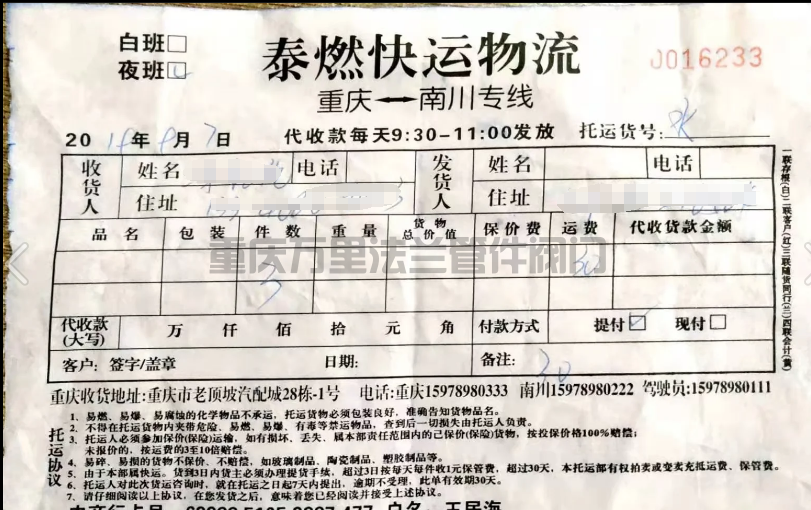 白班□ 泰燃快运物流 0016233
夜班□ 重庆↔南川专线
20 年 月 7 日 代收款每天9:30-11:00发放 托运货号:
收货人 姓名 电话 发货人 姓名 电话
住址 住址
品名 包装 件数 重量 货物总价值 保价费 运费 代收货款金额
重庆万里法兰管件阀门
3
代收款(大写) 万 仟 佰 拾 元 角 付款方式 提付☑ 现付□
客户: 签字/盖章 日期: 备注: 30
重庆收货地址:重庆市老顶坡汽配城28栋-1号 电话:重庆15978980333 南川15978980222 驾驶员:15978980111
托运协议
1、易燃、易爆、易腐蚀的化学物品不承运,托运货物必须包装良好,准确告知货物品名。
2、不得在托运货物内夹带危险、易燃、易爆、有毒等禁运物品,查到后一切损失由托运人负责。
3、托运人必须参加保价(保险)运输,如有损坏、丢失、属本部责任范围内的已保价(保险)货物,按投保价格100%赔偿;
未报价的,按运费的3至10倍赔偿。
4、易碎、易损的货物不保价、不赔偿,如玻璃制品、陶瓷制品、塑胶制品等。
5、由于本部属快运。货到3日内货主必须办理提货手续,超过3日按每天每件收1元保管费,超过30天,本托运部有权拍卖或变卖充抵运费、保管费。
6、托运人对此次货运咨询时,就在托运之日起7天内提出,逾期不受理,此单有效期30天。
7、请仔细阅读以上协议,在您发货之后,意味着您已经阅读并接受上述协议。
一联存根(白)二联客户(红)三联随货同行(兰)四联会计(黄)